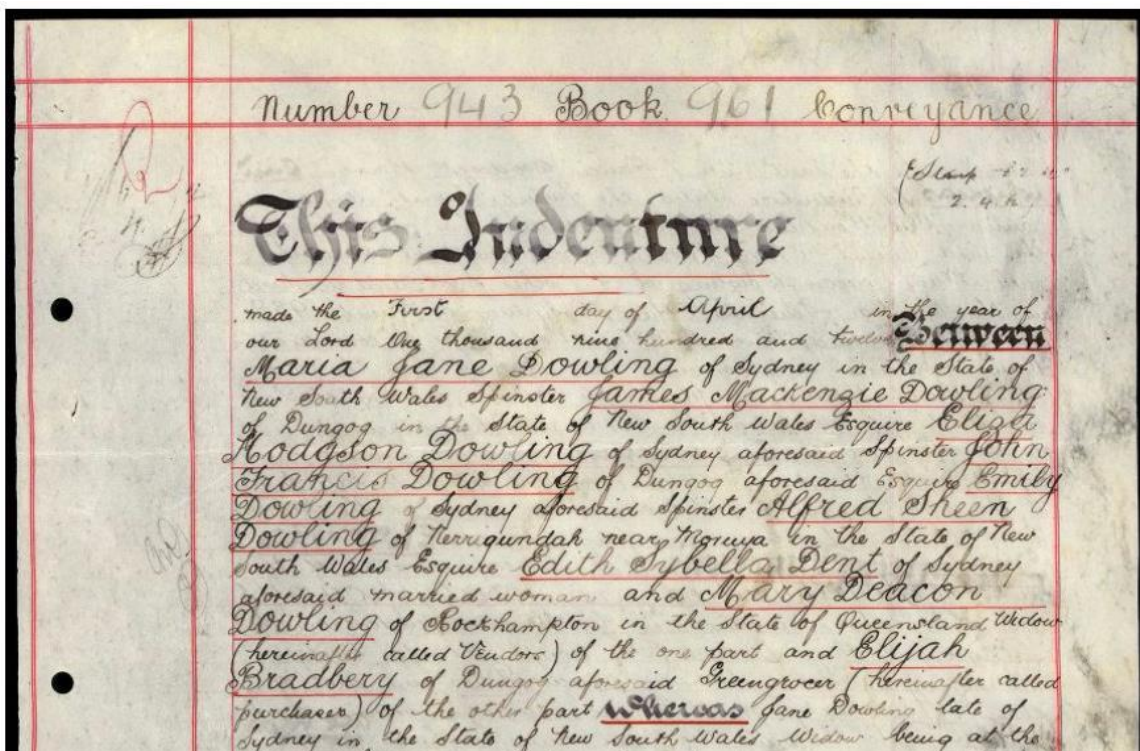 Number 943 Book 961 Conveyance
(Stamp
2.4.12
This Indenture
made the First day of April in the year of
our Lord One thousand nine hundred and twelve Between
Maria Jane Dowling of Sydney in the State of
New South Wales Spinster James Mackenzie Dowling
of Dungog in the State of New South Wales Esquire Eliza
Hodgson Dowling of Sydney aforesaid Spinster John
Francis Dowling of Dungog aforesaid Esquire Emily
Dowling of Sydney aforesaid Spinster Alfred Sheen
Dowling of Nerrigundah near Moruya in the State of New
South Wales Esquire Edith Sybella Dent of Sydney
aforesaid married woman and Mary Deacon
Dowling of Rockhampton in the State of Queensland Widow
(hereinafter called Vendors) of the one part and Elijah
Bradbery of Dungog aforesaid Greengrocer (hereinafter called
purchaser) of the other part Whereas Jane Dowling late of
Sydney in the State of New South Wales Widow being at the